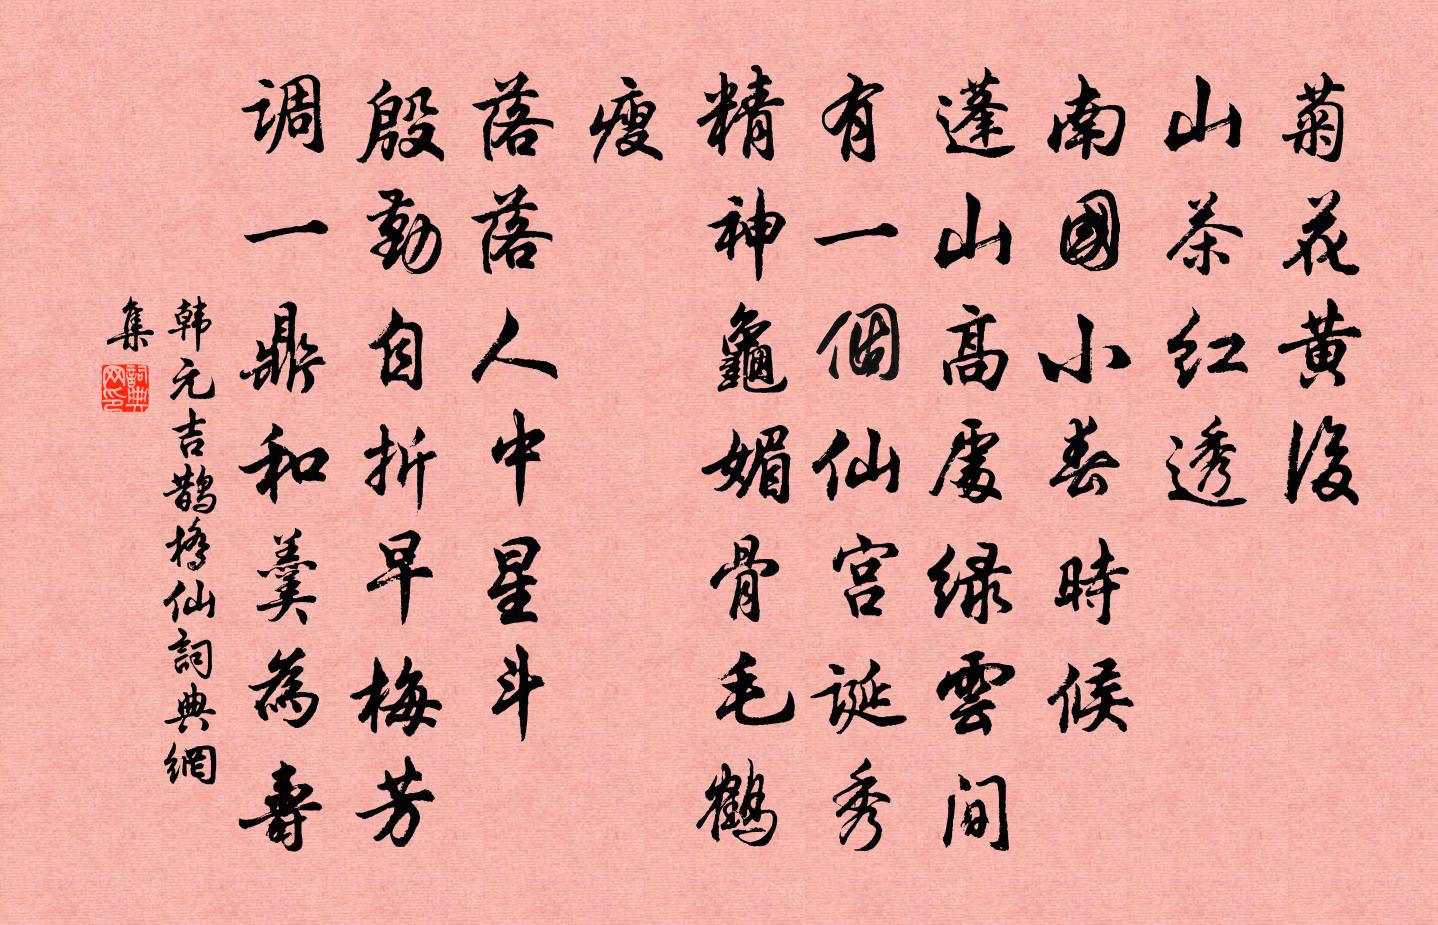 菊花黄後
山茶红透
南國小春時候
蓬山高處绿雲间
有一個仙宫诞秀
精神龜媚骨毛鹤
瘦
落落人中星斗
殷勤自折早梅芳
调一鼎和羹為壽
韩元吉鹊橋仙詞典網
集
詞典網印